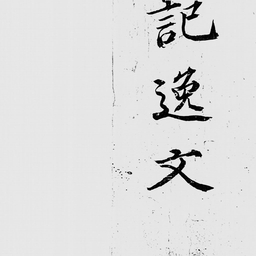 記逸文